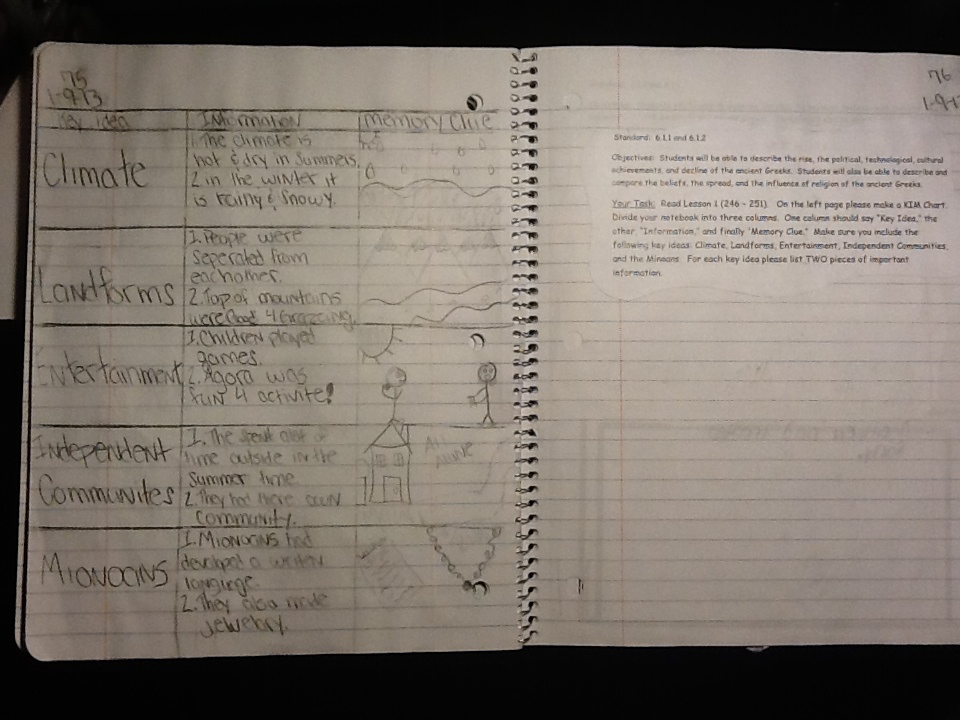 75
1-9-13
Key idea
Information
Memory Clue
Climate
1. The climate is
hot & dry in summers.
2 in the winter it
is rainy & snowy.
Landforms
1. People were
seperated from
eachother.
2. Top of mountains
were Good 4 Grazing.
Entertainment
1. Children played
games.
2. Agora was
fun 4 activite!
Independent
Communites
1. The spent alot of
time outside in the
summer time
2. They had there own
community.
All
alone
Mionoans
1. Mionoans had
developed a written
languge.
2. They also made
jewelry.
76
1-9-1
Standard: 6.1.1 and 6.1.2
Objectives: Students will be able to describe the rise, the political, technological, cultural
achievements, and decline of the ancient Greeks. Students will also be able to describe and
compare the beliefs, the spread, and the influence of religion of the ancient Greeks.
Your Task: Read Lesson 1 (246 - 251). On the left page please make a KIM Chart.
Divide your notebook into three columns. One column should say "Key Idea," the
other, "Information," and finally "Memory Clue." Make sure you include the
following key ideas: Climate, Landforms, Entertainment, Independent Communities,
and the Minoans. For each key idea please list TWO pieces of important
information.